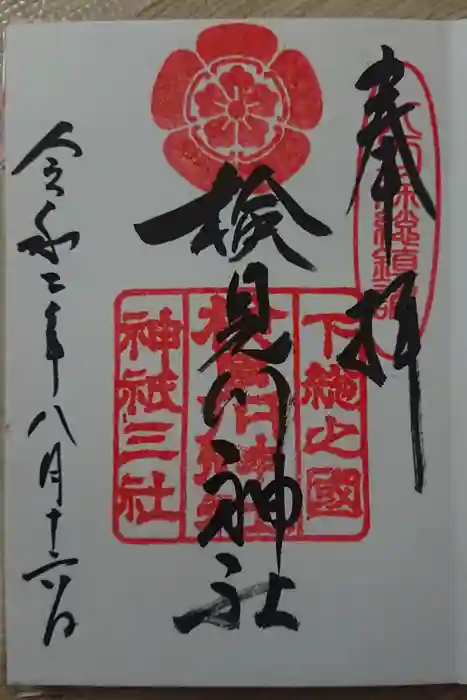 奉拝
下總之國
検見川神社
神祇三社
令和二年八月十六日